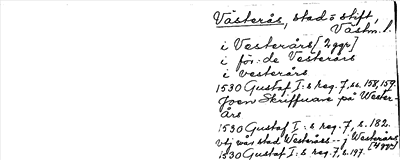 Västerås, stad o stift,
Västm. l.
i Vesterårs [2 ggr]
i för.de Vesterårs
i vesterårs
1530 Gustaf I:s reg. 7, ss. 158, 159.
Joen Skriffuare på Wester-
års
1530 Gustaf I:s reg. 7, s. 182.
vtj vår stad Westeråss -- j Westerårs
[4 ggr]
1530 Gustaf I:s reg. 7, s. 197.